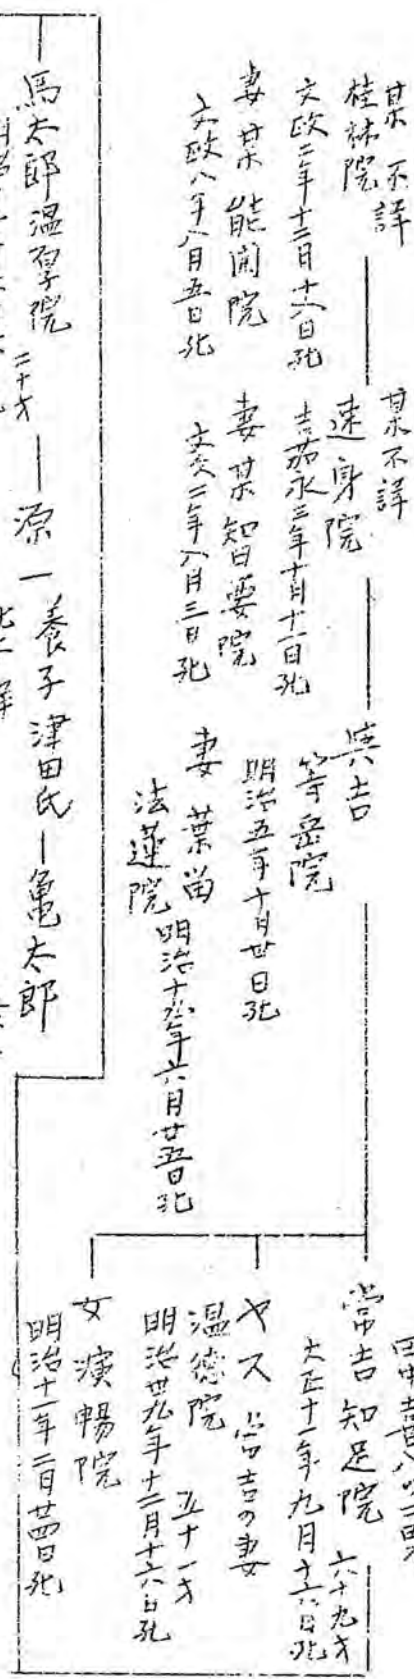 某 不詳
桂林院
文政二年十二月十六日死
妻 某 能開院
文政八年八月五日死
某 不詳
速身院
嘉永三年十月十一日死
妻 某 智要院
文久二年八月三日死
寅吉
等岳院
明治五年十月廿日死
妻 葉留
法蓮院
明治十九年六月廿五日死
常吉 知足院 六十九才
大正十一年九月十六日死
ヤス 常吉の妻
温徳院 五十一才
明治廿九年十二月十六日死
女 演暢院
明治十一年二月廿四日死
馬太郎 温厚院 二十才
源一 養子 津田氏
亀太郎